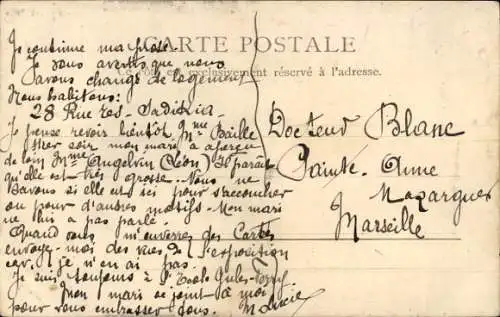 Je continue ma prose.
CARTE POSTALE
Je vous avertis que nous
Ce côté est exclusivement réservé à l'adresse.
avons changé de logement
Nous habitons:
28 Rue res- Sadikia
Je pense revoir bientôt Mme Baille
hier soir mon mari a aperçu
de loin Mme Angelvin (Léon) Il paraît
qu'elle est très grosse. Nous ne
savons si elle est ici pour s'accoucher
ou pour d'autres motifs. Mon mari
ne lui a pas parlé.
Quand vous m'enverrez des Cartes
envoyez-moi des vues de l'exposition
car je n'en ai pas.
Je suis toujours à l'Ecole Jules-Ferry
Mon mari se joint à moi
pour vous embrasser tous.
M Lucie
Docteur Blanc
Sainte-Anne
Mazargues
Marseille